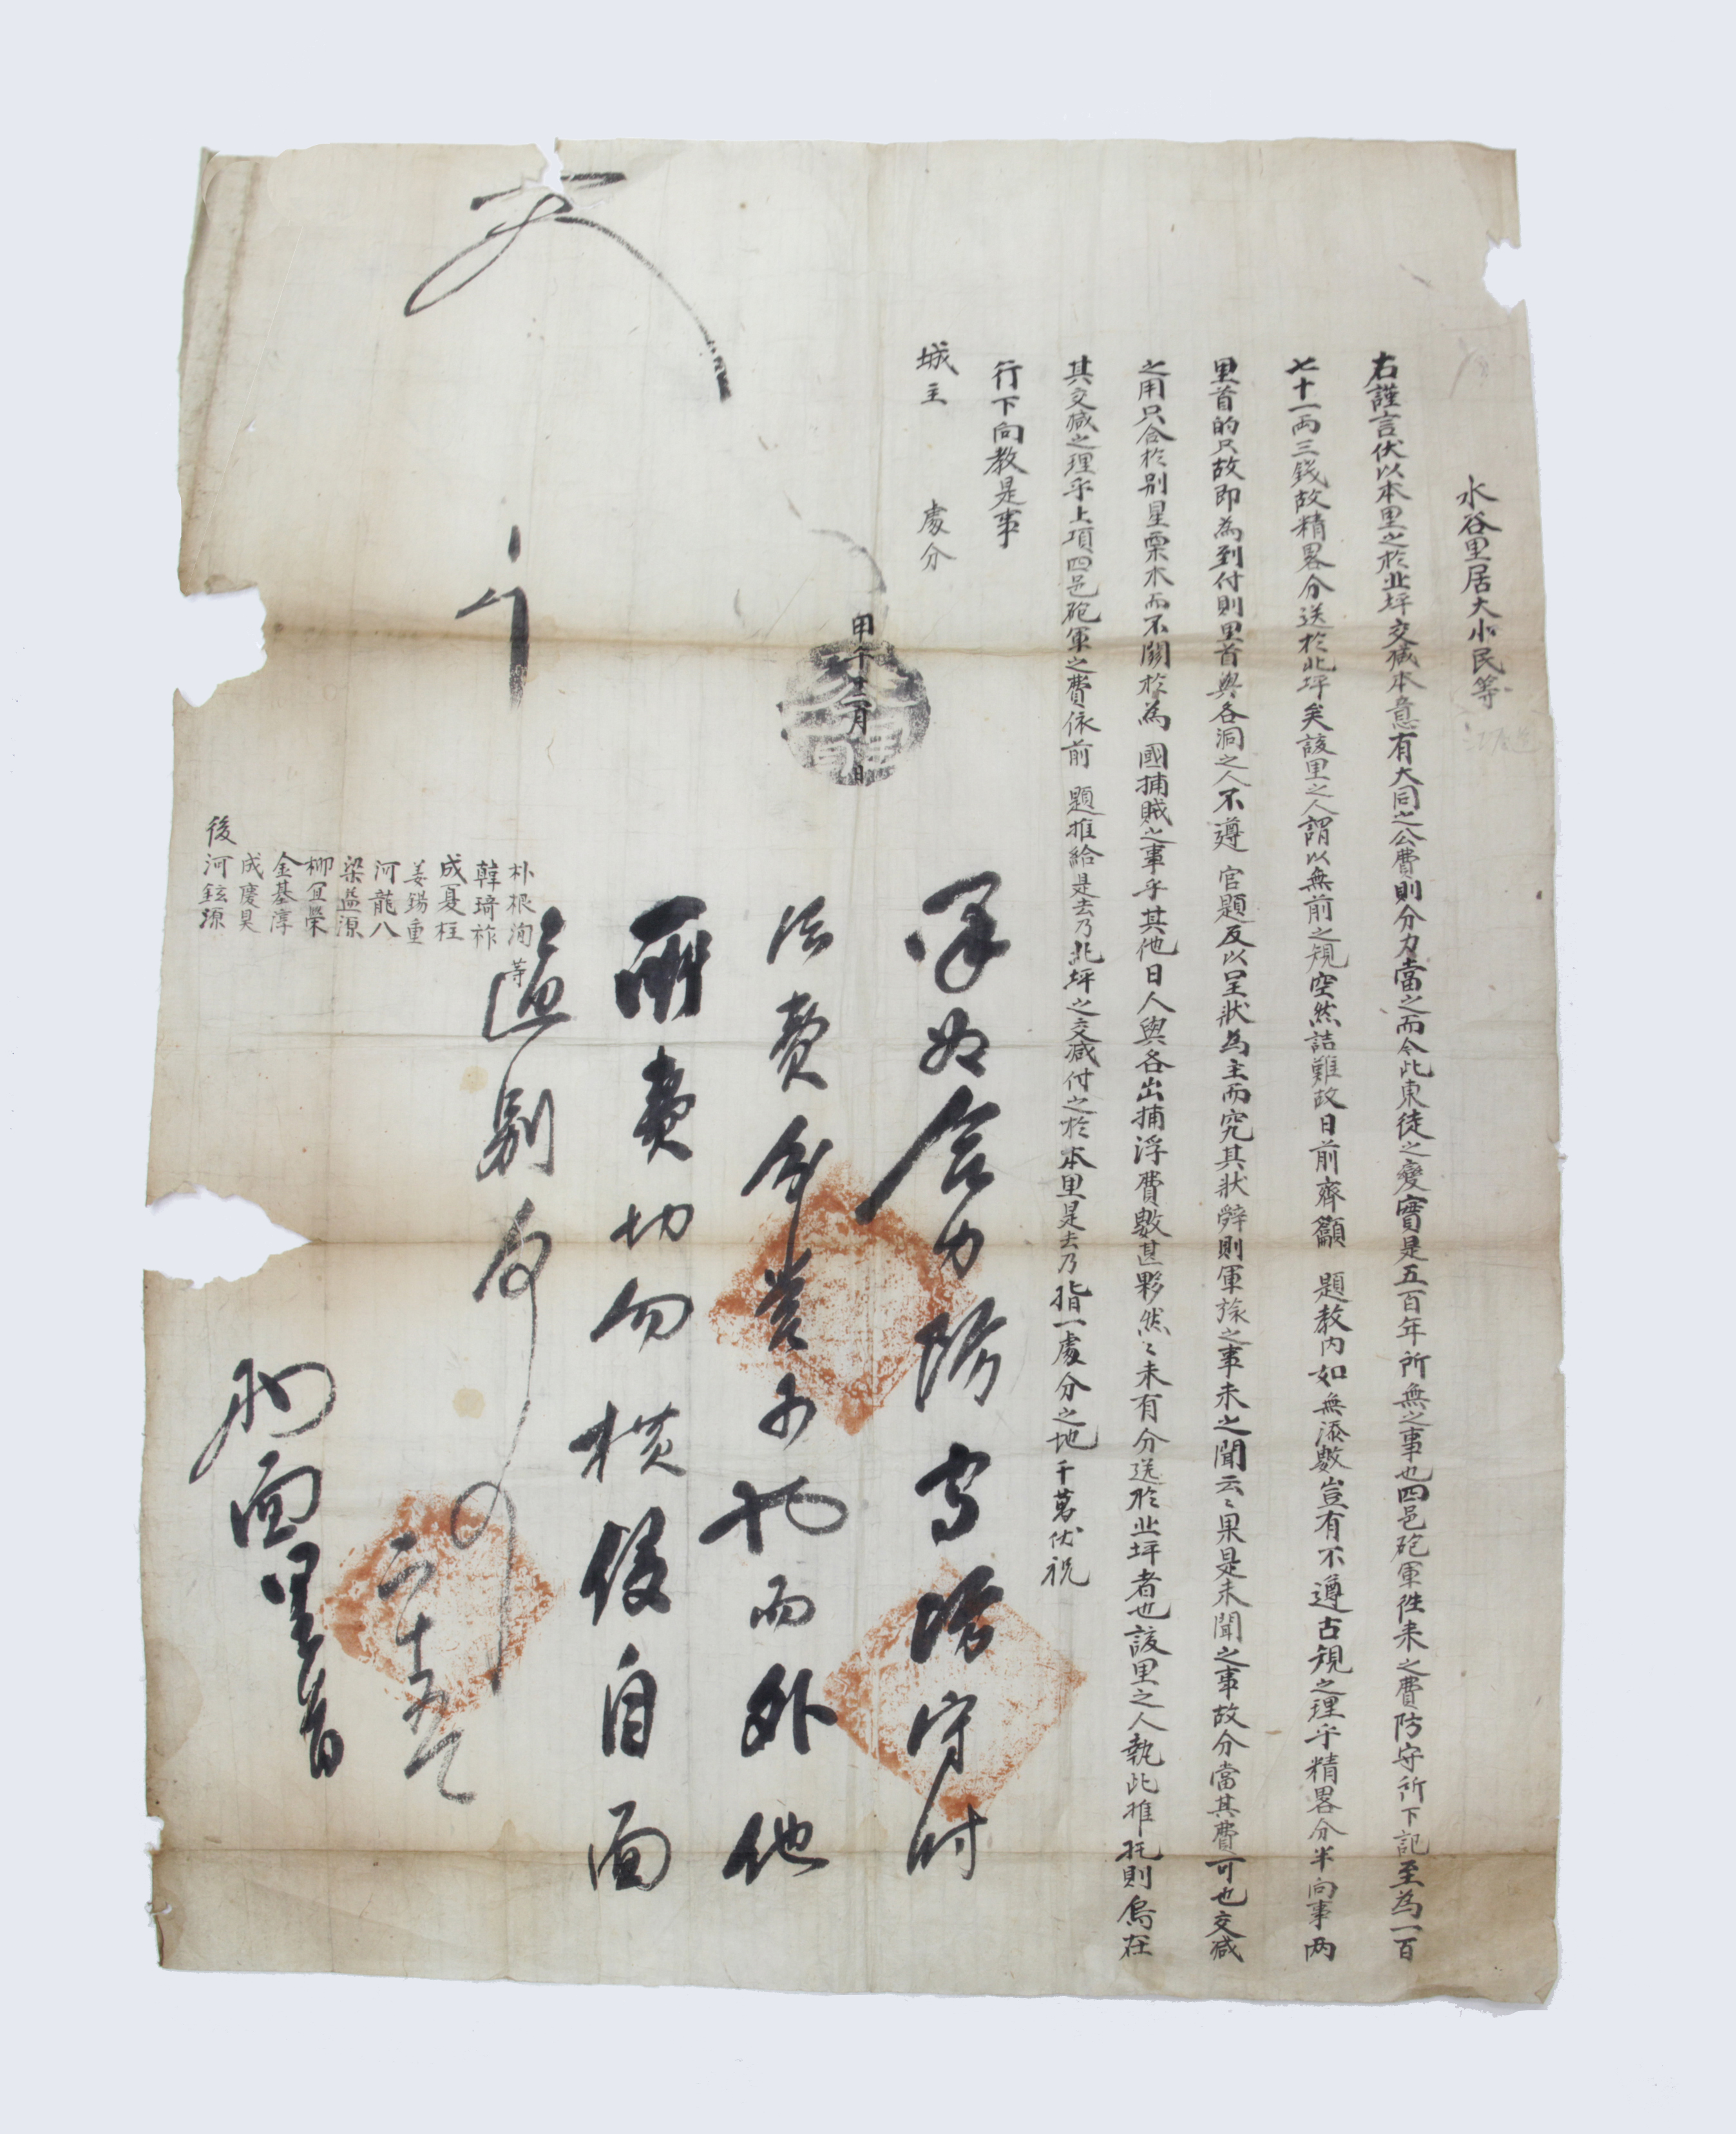 水谷里居大小民等
右謹言伏以本里之於北坪交減本意有大同之公費則分力當之而今此東徒之變實是五百年所無之事也四邑砲軍往來之費防守所下記至為一百
七十一兩三錢故精畧分送於北坪矣該里之人謂以無前之規空然詰難故日前齊籲 題教內如無添數豈有不遵古規之理乎精畧分半向事兩
里首的只故即為到付則里首與各洞之人不遵 官題反以呈狀為主而究其狀辭則軍旅之事未之聞云〻果是未聞之事故分當其費可也交減
之用只合於別星栗木而不關於為 國捕賊之事乎其他日人與各出捕浮費數甚夥然〻未有分送於北坪者也該里之人執此推托則烏在
其交減之理乎上項四邑砲軍之費依前 題推給是去乃北坪之交減付之於本里是去乃指一處分之地千萬伏祝
行下向教是事
城主 處分
甲午十二月 日
朴根洵 等
韓琦祚
成夏柱
姜錫重
河龍八
梁益源
柳宜榮
金基淳
成慶昊
後 河鉉源
合力防守防守付
費分當而外他
費切勿橫侵自面
別向
二十五
面里首